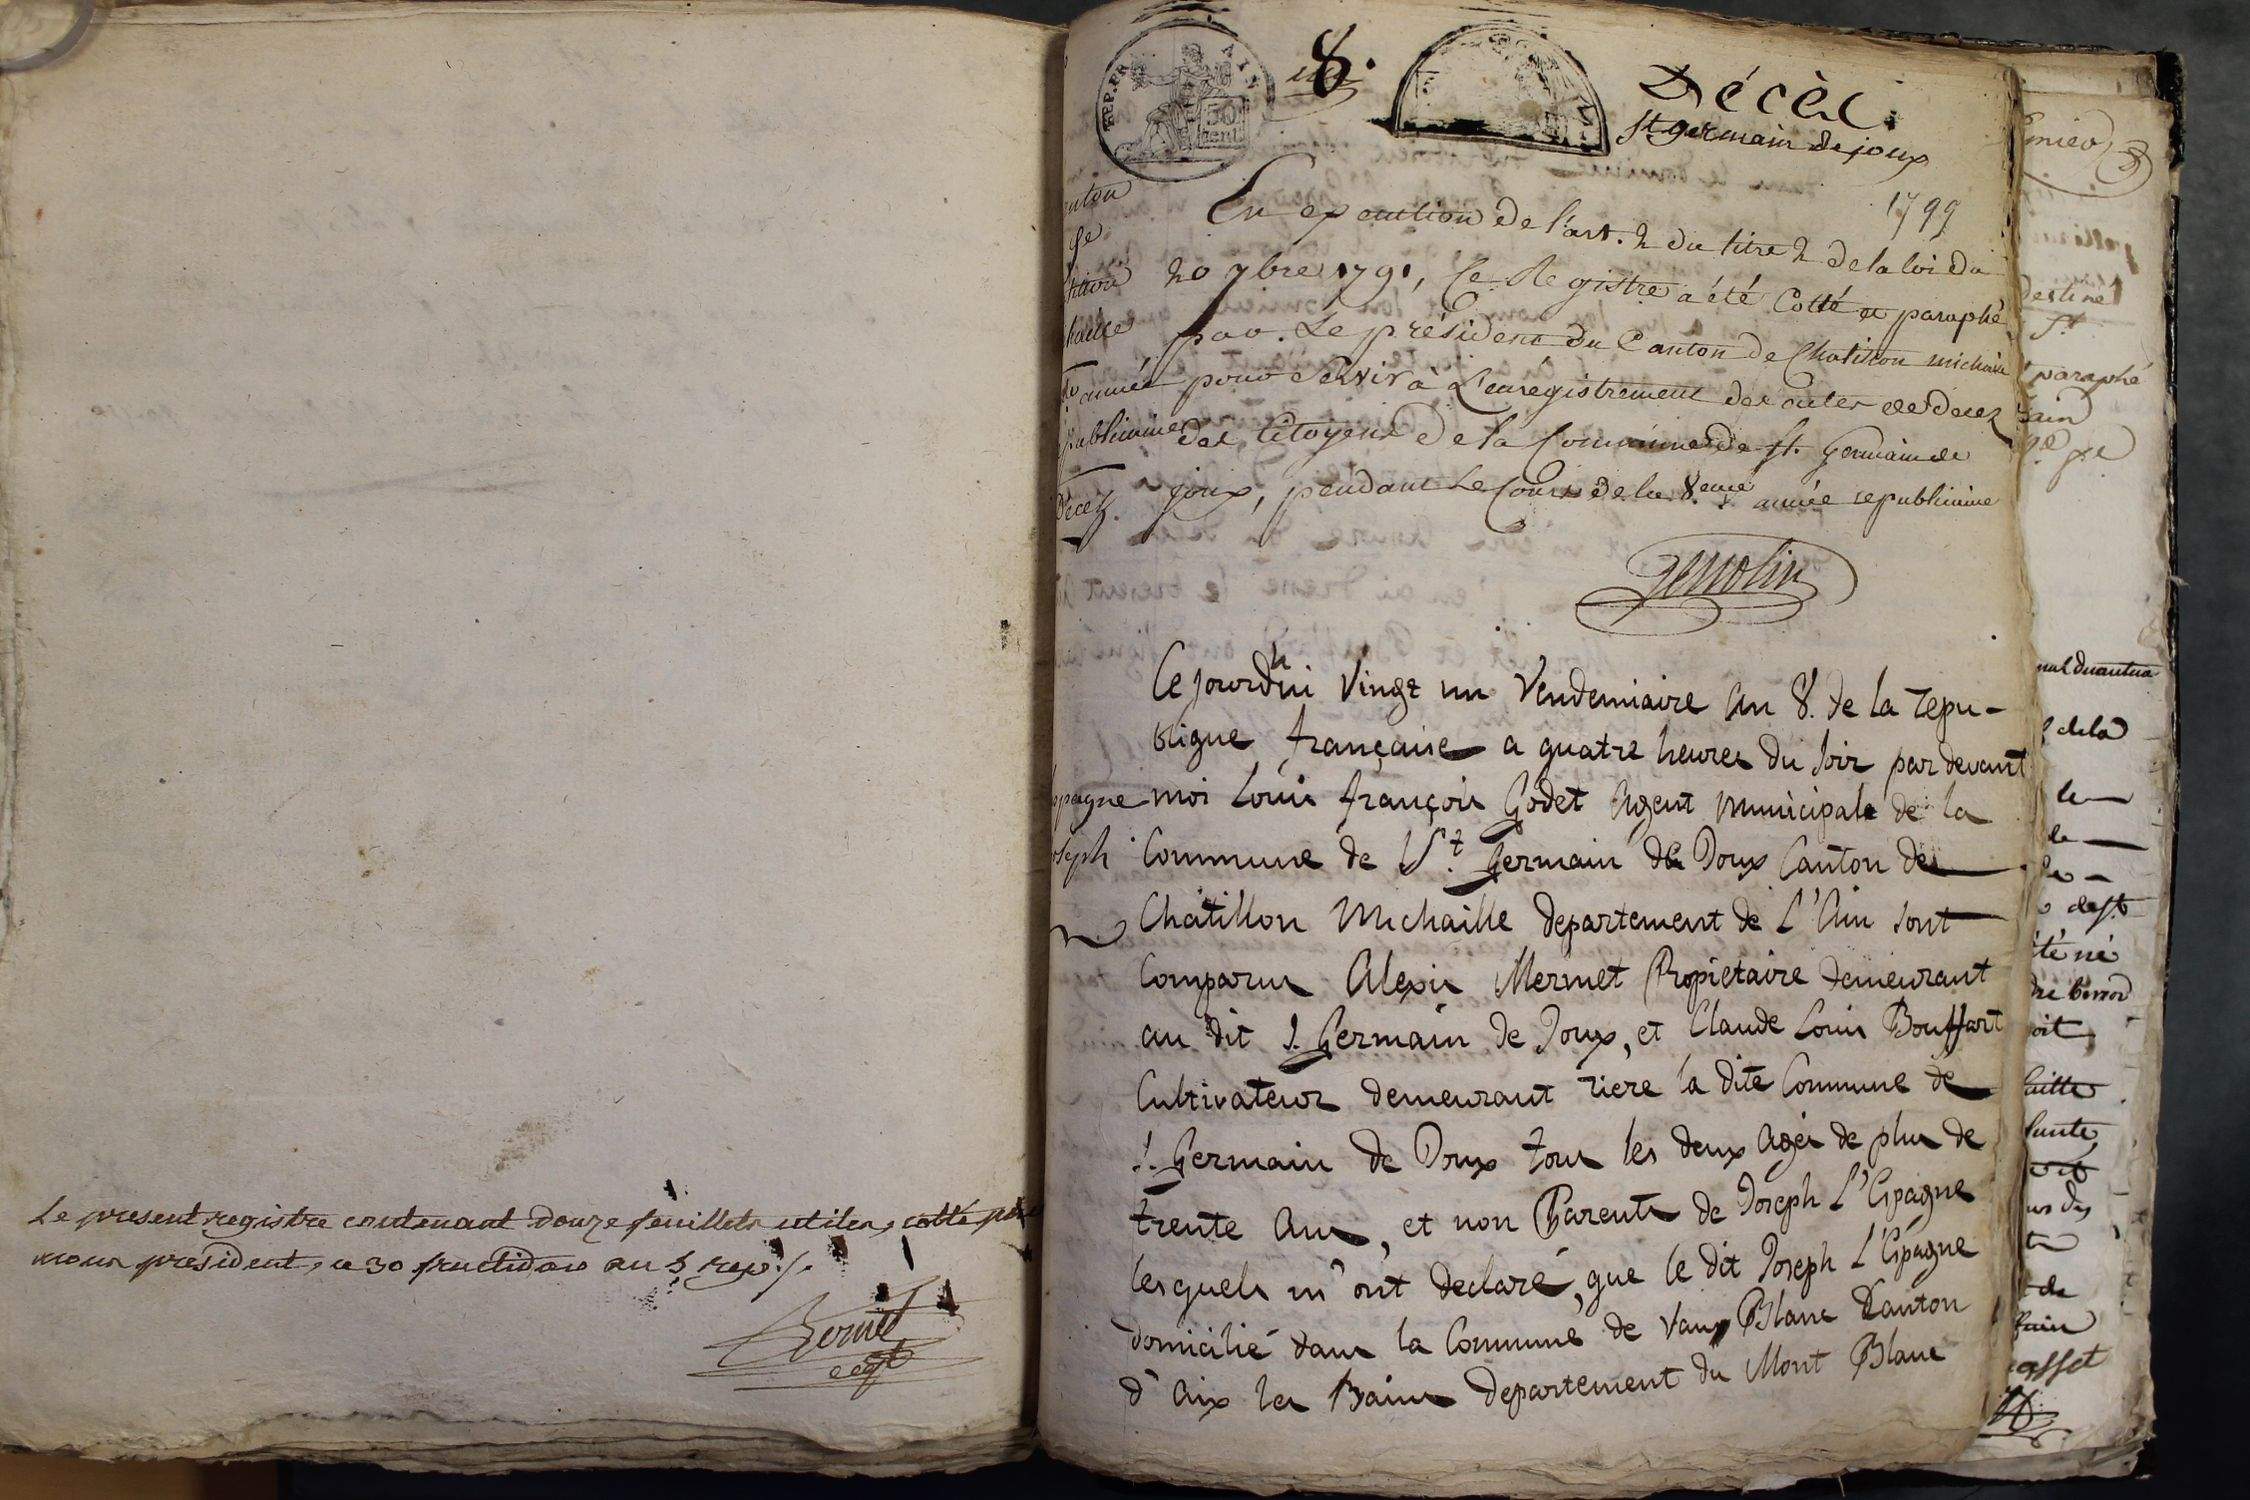 Le present registre contenant douze feuillets utiles, cotté par
nous president, ce 30 fructidor an 5 rep.
REP. FR. AIN
50 cent
8.
Décès.
St germain de joux
1799
En execution de l'art. 2 du titre 2 de la loi du
20 7bre 1791, Ce Registre a été Cotté et paraphé
par Le président du Canton de Chatillon michaille
pour servir à L'enregistrement des actes de decez
des Citoyens de la Commune de St. Germain de
joux, pendant Le Cours de la 8.eme année republicaine
Genolin
Ce jourdhui vingt un Vendemiaire an 8. de la repu-
blique française a quatre heures du soir par devant
moi Louis françois Godet Agent Municipale de la
Commune de St. Germain de Joux Canton de
Chatillon Michaille departement de L'Ain sont
Comparus Alexis Mermet Propietaire demeurant
au dit S. Germain de Joux, et Claude Louis Bouffart
Cultivateur demeurant riere la dite Commune de
S. Germain de Joux tous les deux ages de plus de
trente ans, et non Parents de Joseph L'Epagne
lesquels m'ont declaré, que le dit Joseph L'Epagne
domicilié dans la Commune de Vaux Blanc Canton
d'Aix les Bains departement du Mont Blanc